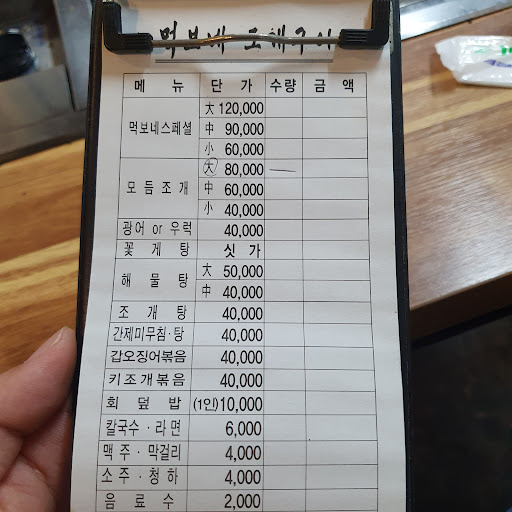 먹보네 조개구이
메 뉴 단 가 수량 금 액
먹보네스페셜 大 120,000
中 90,000
小 60,000
모듬조개 大 80,000
中 60,000
小 40,000
광어 or 우럭 40,000
꽃 게 탕 싯 가
해 물 탕 大 50,000
中 40,000
조 개 탕 40,000
간제미무침·탕 40,000
갑오징어볶음 40,000
키조개볶음 40,000
회 덮 밥 (1인)10,000
칼국수·라면 6,000
맥주·막걸리 4,000
소주·청하 4,000
음 료 수 2,000